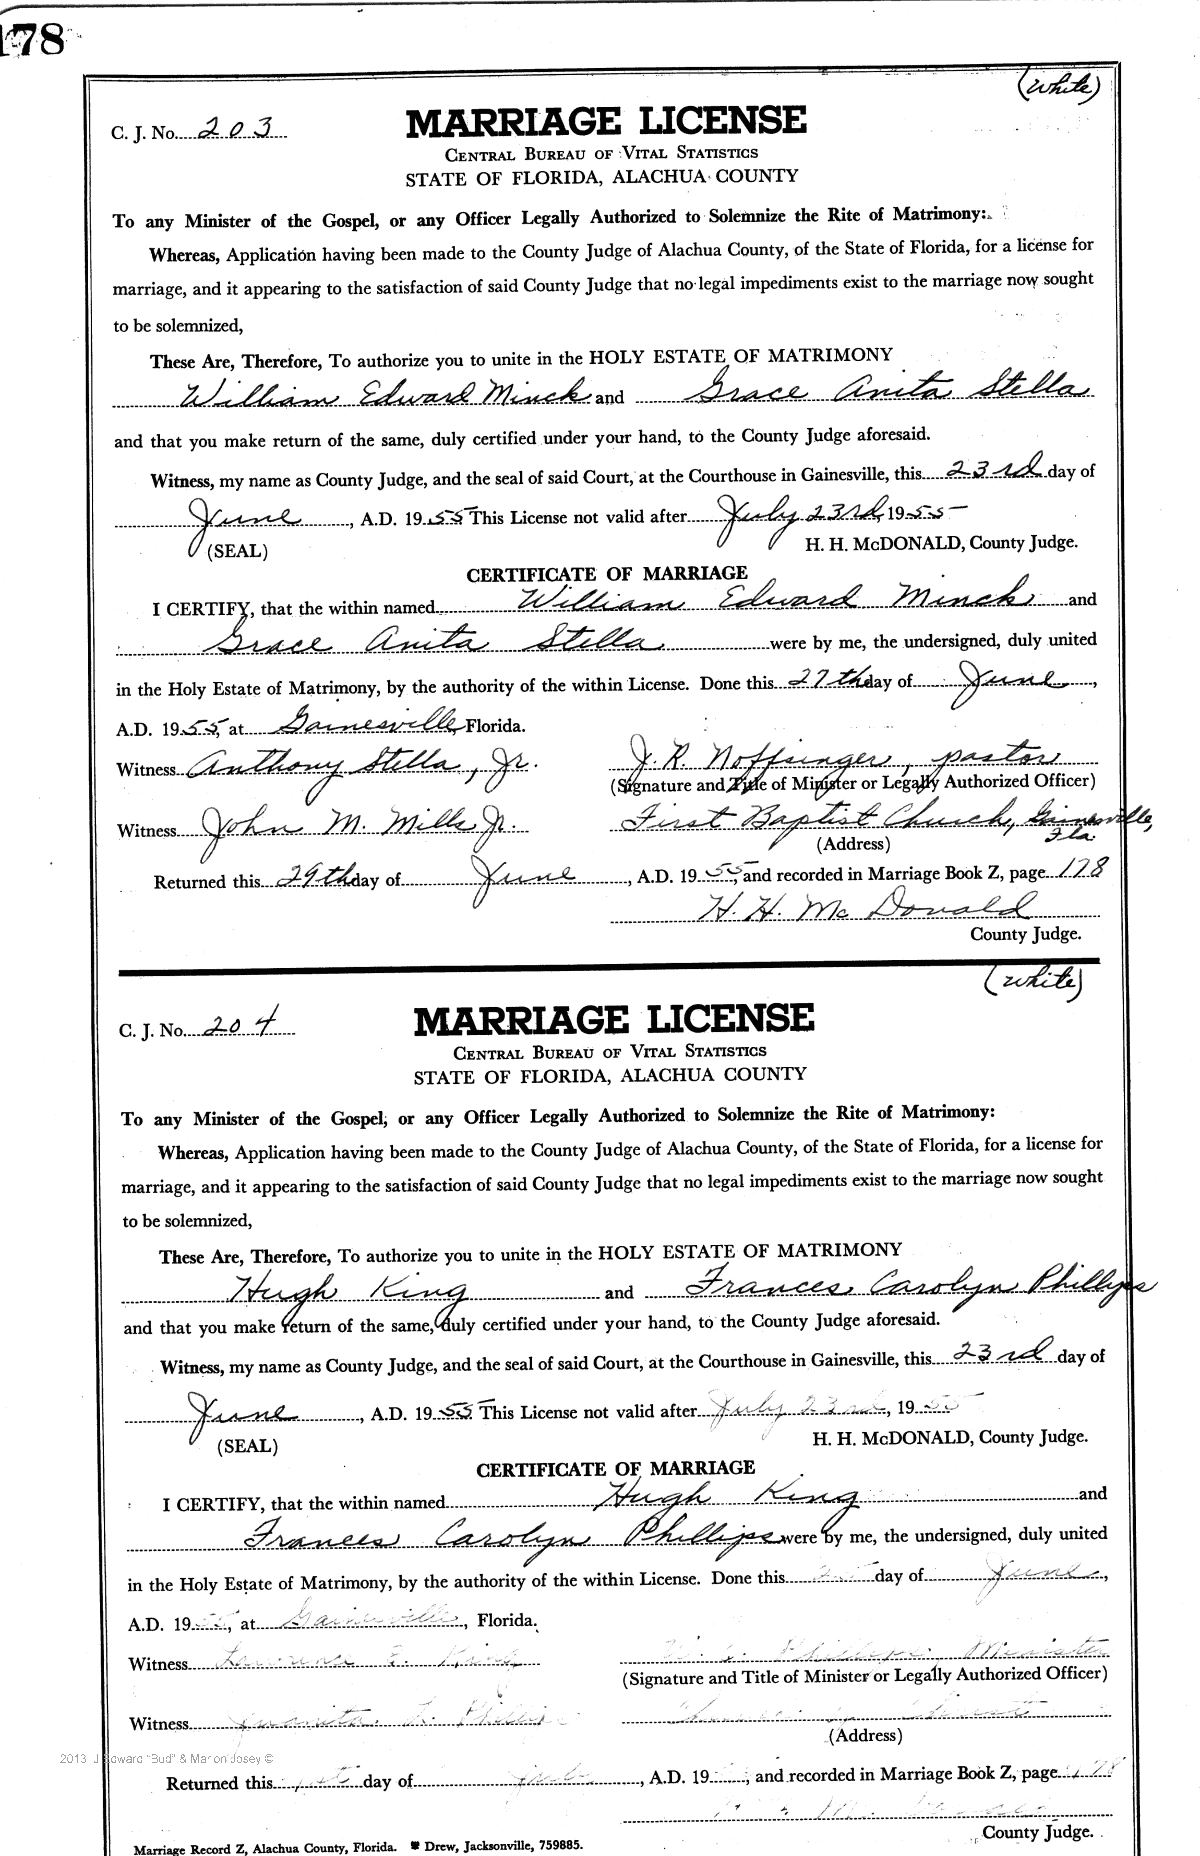 178
(White)
C. J. No. 203
MARRIAGE LICENSE
CENTRAL BUREAU OF VITAL STATISTICS
STATE OF FLORIDA, ALACHUA COUNTY
To any Minister of the Gospel, or any Officer Legally Authorized to Solemnize the Rite of Matrimony:
Whereas, Application having been made to the County Judge of Alachua County, of the State of Florida, for a license for
marriage, and it appearing to the satisfaction of said County Judge that no legal impediments exist to the marriage now sought
to be solemnized,
These Are, Therefore, To authorize you to unite in the HOLY ESTATE OF MATRIMONY
William Edward Minck and Grace Anita Stella
and that you make return of the same, duly certified under your hand, to the County Judge aforesaid.
Witness, my name as County Judge, and the seal of said Court, at the Courthouse in Gainesville, this 23rd day of
June, A.D. 1955 This License not valid after July 23rd, 1955
(SEAL) H. H. McDONALD, County Judge.
CERTIFICATE OF MARRIAGE
I CERTIFY, that the within named William Edward Minck and
Grace Anita Stella were by me, the undersigned, duly united
in the Holy Estate of Matrimony, by the authority of the within License. Done this 27th day of June,
A.D. 1955, at Gainesville, Florida.
Witness Anthony Stella, Jr. J. R. Noffsinger, pastor
(Signature and Title of Minister or Legally Authorized Officer)
Witness John M. Mills Jr. First Baptist Church, Gainesville, Fla.
(Address)
Returned this 29th day of June, A.D. 1955, and recorded in Marriage Book Z, page 178
H. H. McDonald
County Judge.
(White)
C. J. No. 204
MARRIAGE LICENSE
CENTRAL BUREAU OF VITAL STATISTICS
STATE OF FLORIDA, ALACHUA COUNTY
To any Minister of the Gospel, or any Officer Legally Authorized to Solemnize the Rite of Matrimony:
Whereas, Application having been made to the County Judge of Alachua County, of the State of Florida, for a license for
marriage, and it appearing to the satisfaction of said County Judge that no legal impediments exist to the marriage now sought
to be solemnized,
These Are, Therefore, To authorize you to unite in the HOLY ESTATE OF MATRIMONY
Hugh King and Frances Carolyn Phillips
and that you make return of the same, duly certified under your hand, to the County Judge aforesaid.
Witness, my name as County Judge, and the seal of said Court, at the Courthouse in Gainesville, this 23rd day of
June, A.D. 1955 This License not valid after July 23rd, 1955
(SEAL) H. H. McDONALD, County Judge.
CERTIFICATE OF MARRIAGE
I CERTIFY, that the within named Hugh King and
Frances Carolyn Phillips were by me, the undersigned, duly united
in the Holy Estate of Matrimony, by the authority of the within License. Done this day of June,
A.D. 1955, at Gainesville, Florida.
Witness Lawrence E. King Phillips, Minister
(Signature and Title of Minister or Legally Authorized Officer)
Witness Juanita L. Phillips Christ
(Address)
2013 J Edward "Bud" & Marion Josey ©
Returned this day of July, A.D. 19, and recorded in Marriage Book Z, page 178
County Judge.
Marriage Record Z, Alachua County, Florida. Drew, Jacksonville, 759885.